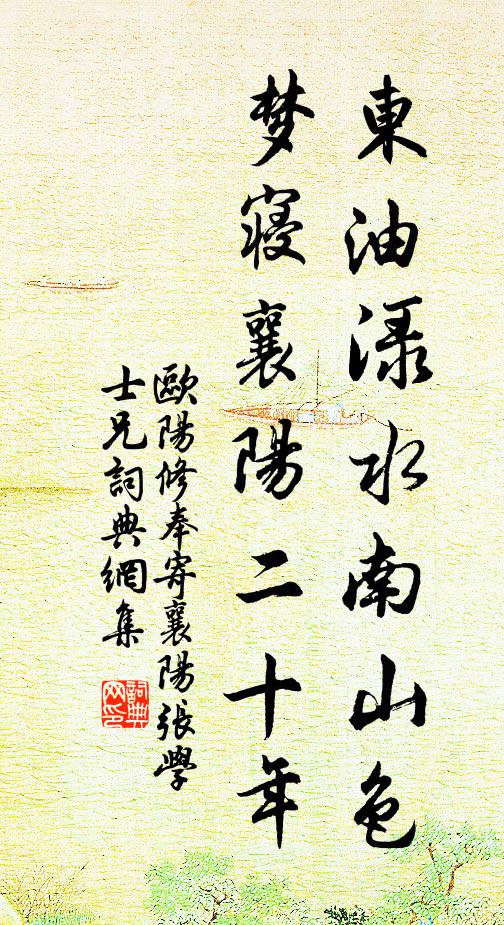 東油渌水南山色
梦寢襄陽二十年
歐陽修奉寄襄陽張學
士兄詞典網集
詞典
网印